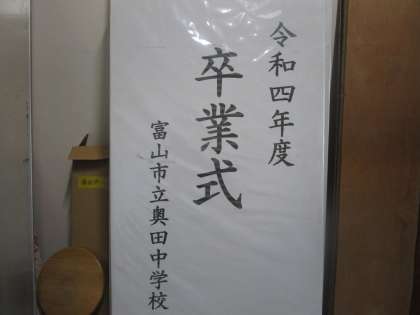 令和四年度
卒業式
富山市立奥田中学校